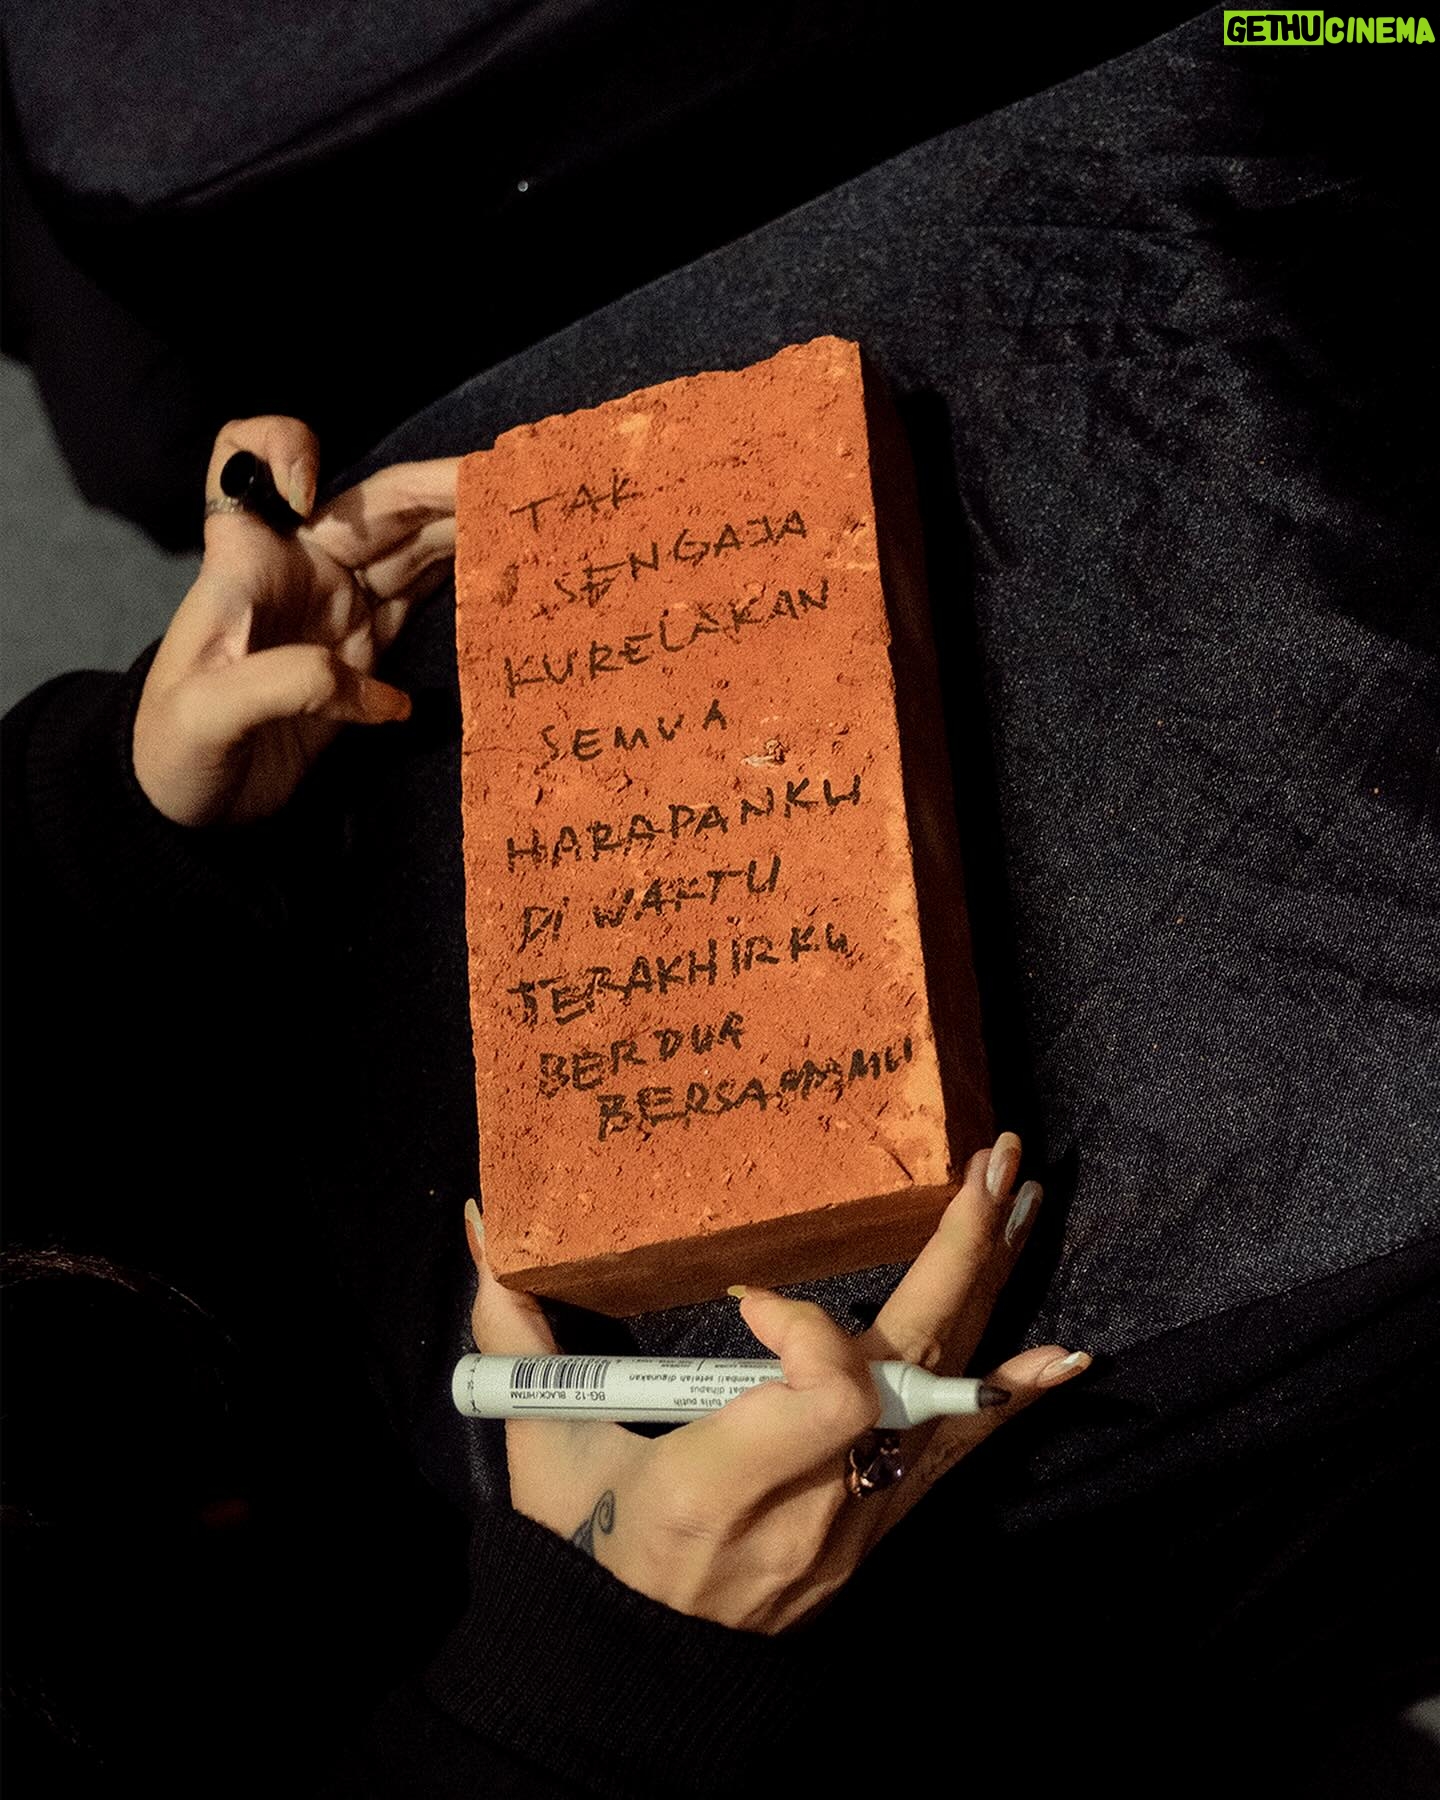 GETHUCINEMA
TAK
SENGAJA
KURELAKAN
SEMUA
HARAPANKU
DI WAKTU
TERAKHIRKU
BERDUA
BERSAMAMU
BG-12 BLACK/HITAM
kembali setelah digunakan
dihapus
tulis putih